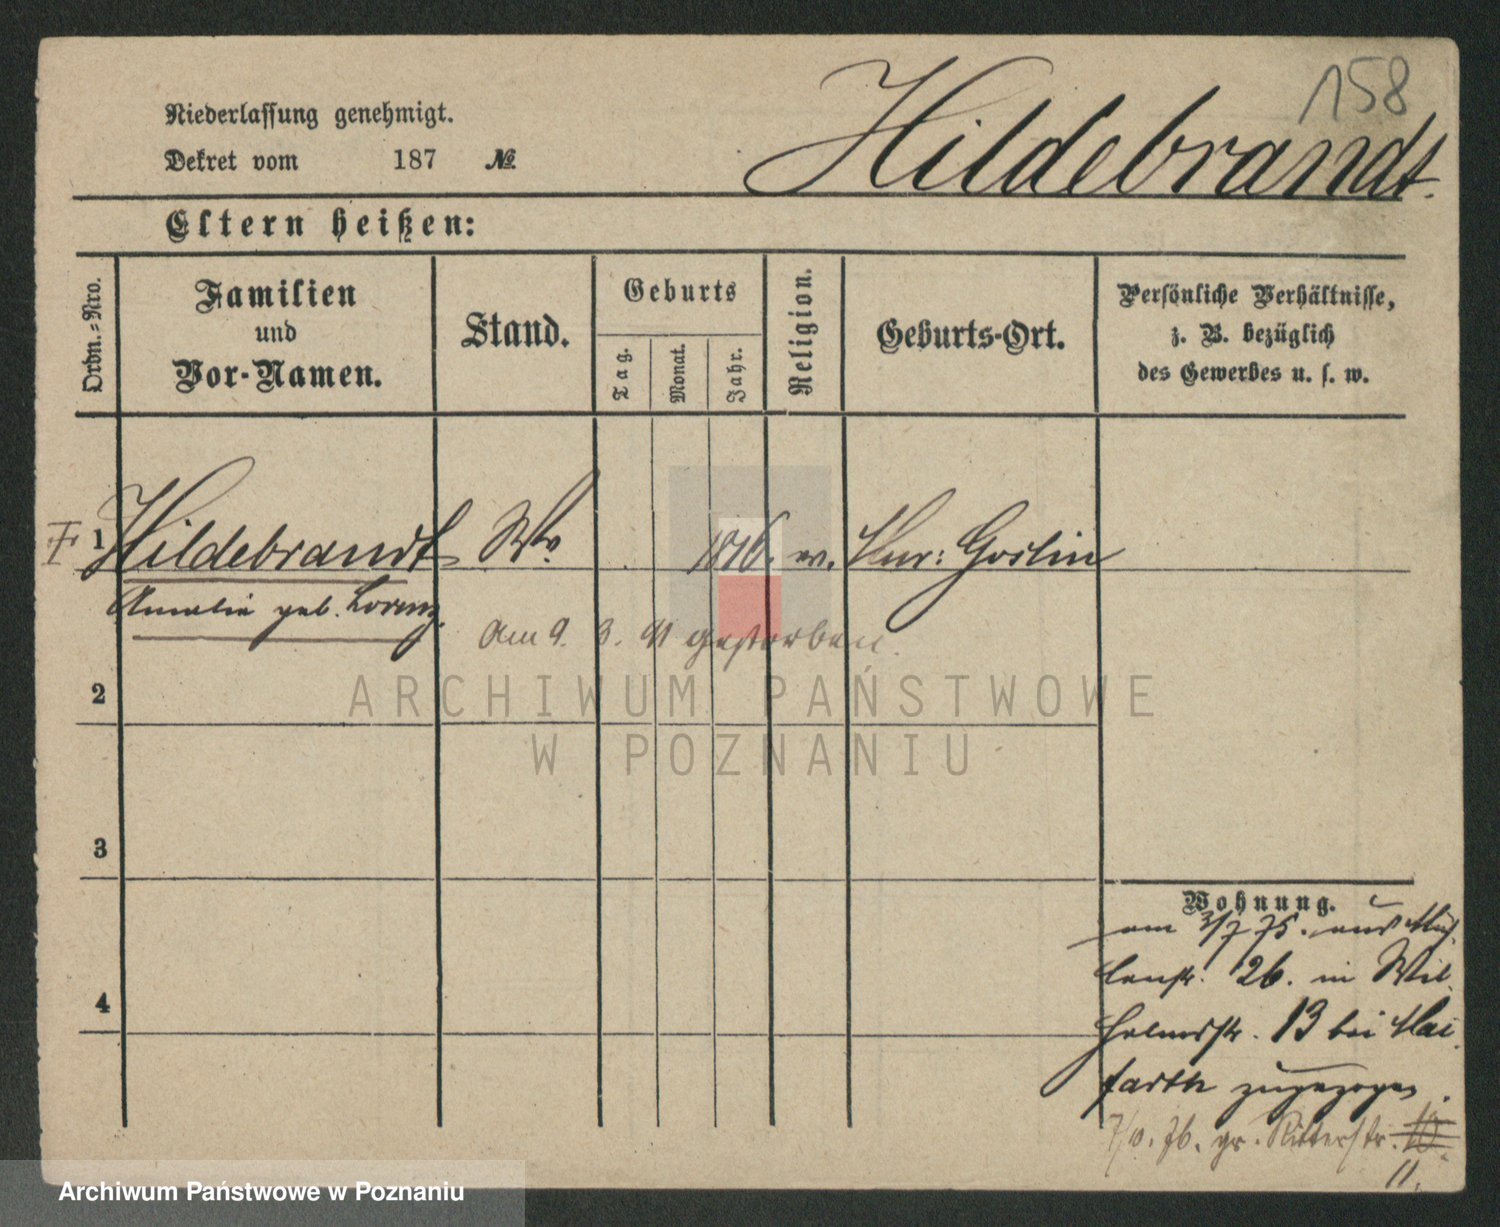 158
Hildebrandt.
Niederlassung genehmigt.
Dekret vom 187 №
Eltern heißen:
Ordn.-Nro.
Familien
und
Vor-Namen.
Stand.
Geburts
Tag.
Monat.
Jahr.
Religion.
Geburts-Ort.
Persönliche Verhältnisse,
z. B. bezüglich
des Gewerbes u. s. w.
1 Hildebrandt Ww. 1816. ev. Mur: Goslin
Amalie geb. Lorenz.
Am 9. 3. 91 gestorben.
2
3
4
Wohnung.
am 3/7 75. aus Müh
lenstr. 26. in Wil
helmsstr. 13 bei Mai
farth zugezogen.
7/10. 76. gr. Ritterstr. 10.
11.
ARCHIWUM PAŃSTWOWE
W POZNANIU
Archiwum Państwowe w Poznaniu